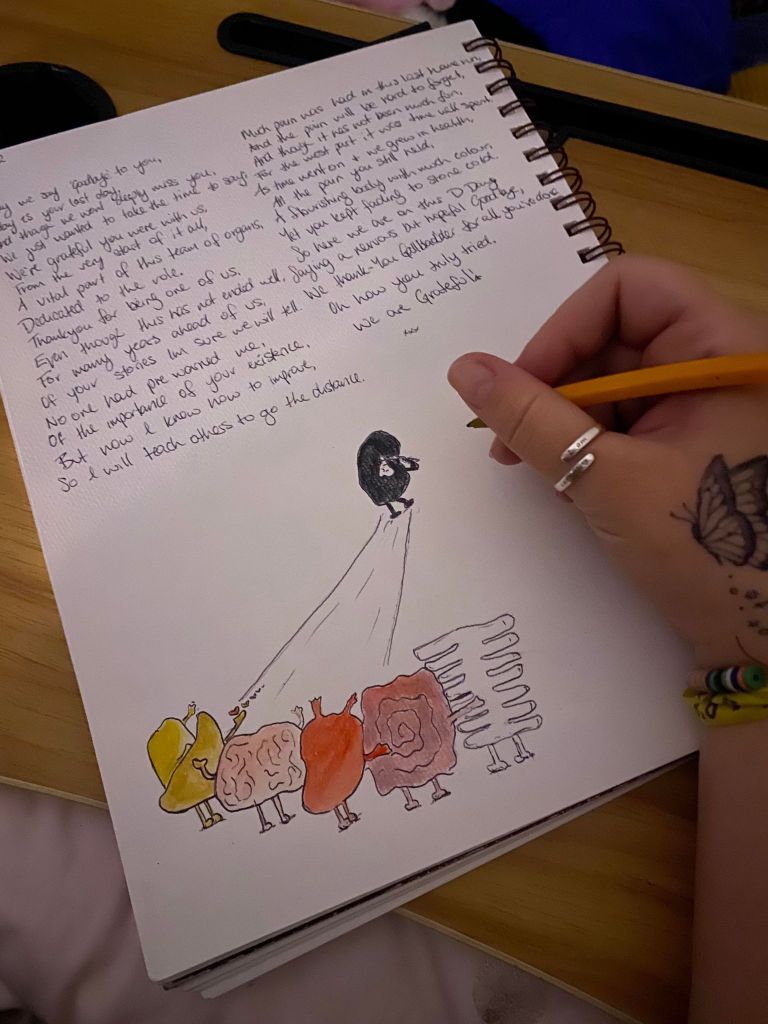 we say 'goodbye' to you,
is your last day,
And though we wont deeply miss you,
We just wanted to take the time to say:
We're grateful you were with us,
From the very start of it all,
A vital part of this team of organs,
Dedicated to the role.
Thankyou for being one of us,
Even though this has not ended well,
For many years ahead of us,
Of your stories Im sure we will tell.
No one had pre warned me,
Of the importance of your existence,
But now I know how to improve,
So I will teach others to go the distance.
Much pain was had in this last
And the pain will be hard to forget,
And though it has not been much fun,
For the most part, it was time well spent.
As time went on & we grew in health,
All the pain you still held,
A flourishing body with much colour,
Yet you kept fading to stone cold.
So here we are on this D Day,
Saying a nervous but hopeful Goodbye,
We Thank-You Gallbladder for all you've done
Oh how you truly tried.
We are Grateful!
xxx
I am